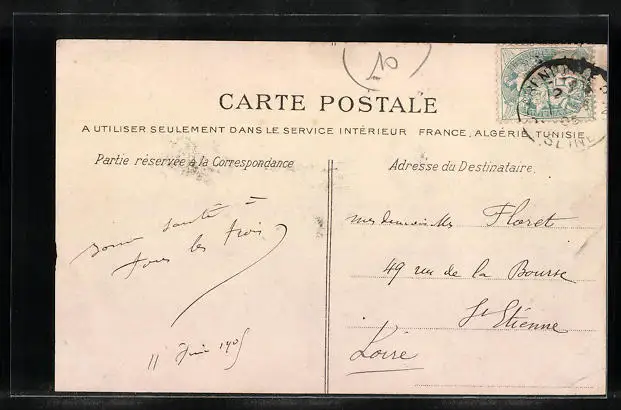 10
CARTE POSTALE
A UTILISER SEULEMENT DANS LE SERVICE INTÉRIEUR FRANCE, ALGÉRIE, TUNISIE
Partie réservée à la Correspondance
Adresse du Destinataire
bonne santé à
tous les trois
11 Juin 1905
Floret
49 rue de la Bourse
St Etienne
Loire